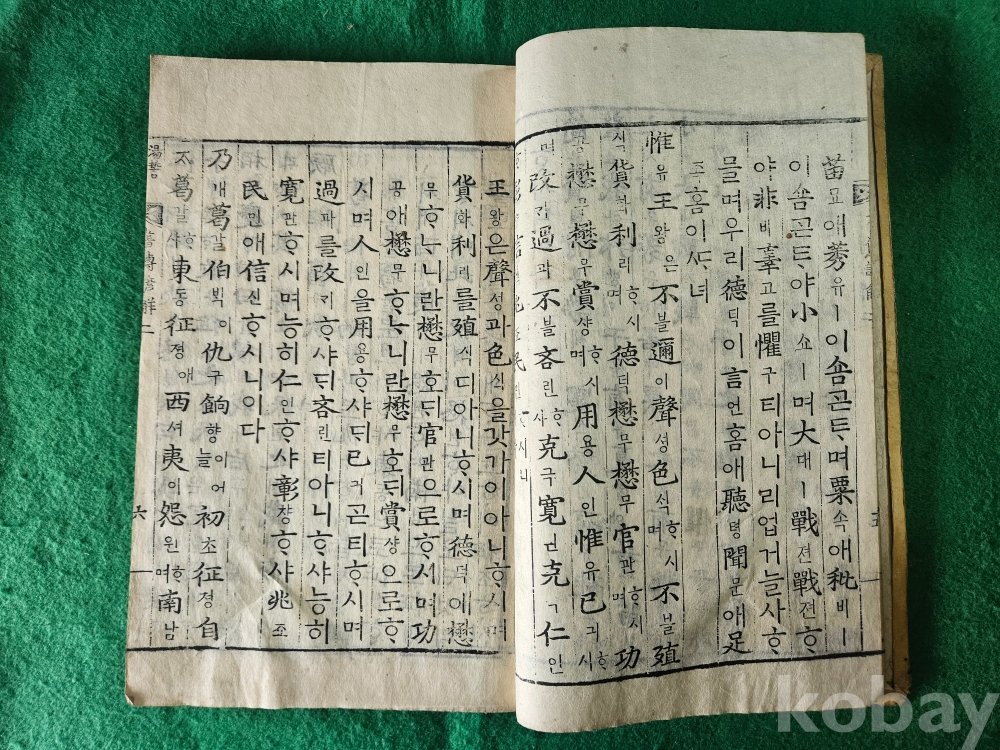 苗묘애莠유ㅣ이ᄉᆞᆷᄀᆞᆮᄐᆞ며粟속애秕비ㅣ
이ᄉᆞᆷᄀᆞᆮᄐᆞ야小쇼ㅣ며大대ㅣ戰젼戰젼ᄒᆞ
야非비辜고를懼구티아니리업거늘ᄉᆞᄒᆞ
믈며우리德덕이言언홈애聽텽聞문애足
죡홈이ᄯᆞ녀
惟유王왕은不블邇이聲셩色ᄉᆡᆨᄒᆞ시며不블殖
식貨화利리ᄒᆞ시며德덕懋무懋무官관ᄒᆞ시며功
공懋무懋무賞샹ᄒᆞ시며用용人인惟유己긔ᄒᆞ시
며改ᄀᆡ過과不블吝린ᄒᆞ샤克극寬관克극仁인
王왕은聲셩과色ᄉᆡᆨ을갓가이아니ᄒᆞ시며
貨화利리를殖식디아니ᄒᆞ시며德덕이懋
무ᄒᆞᄂᆞ니란懋무호ᄃᆡ官관으로ᄒᆞ시며功
공애懋무ᄒᆞᄂᆞ니란懋무호ᄃᆡ賞샹으로ᄒᆞ
시며人인을用용ᄒᆞ샤ᄃᆡ己긔ᄀᆞᆮ티ᄒᆞ시며
過과를改ᄀᆡᄒᆞ샤ᄃᆡ吝린티아니ᄒᆞ샤능히
寬관ᄒᆞ시며능히仁인ᄒᆞ샤彰쟝ᄒᆞ샤兆죠
民민애信신ᄒᆞ시니이다
乃내葛갈伯ᄇᆡᆨ이仇구餉향이어늘初초征졍自
ᄌᆞ葛갈ᄒᆞ샤東동征졍애西셔夷이怨원ᄒᆞ며南남
湯誓 書傳諺解二 六
kobay